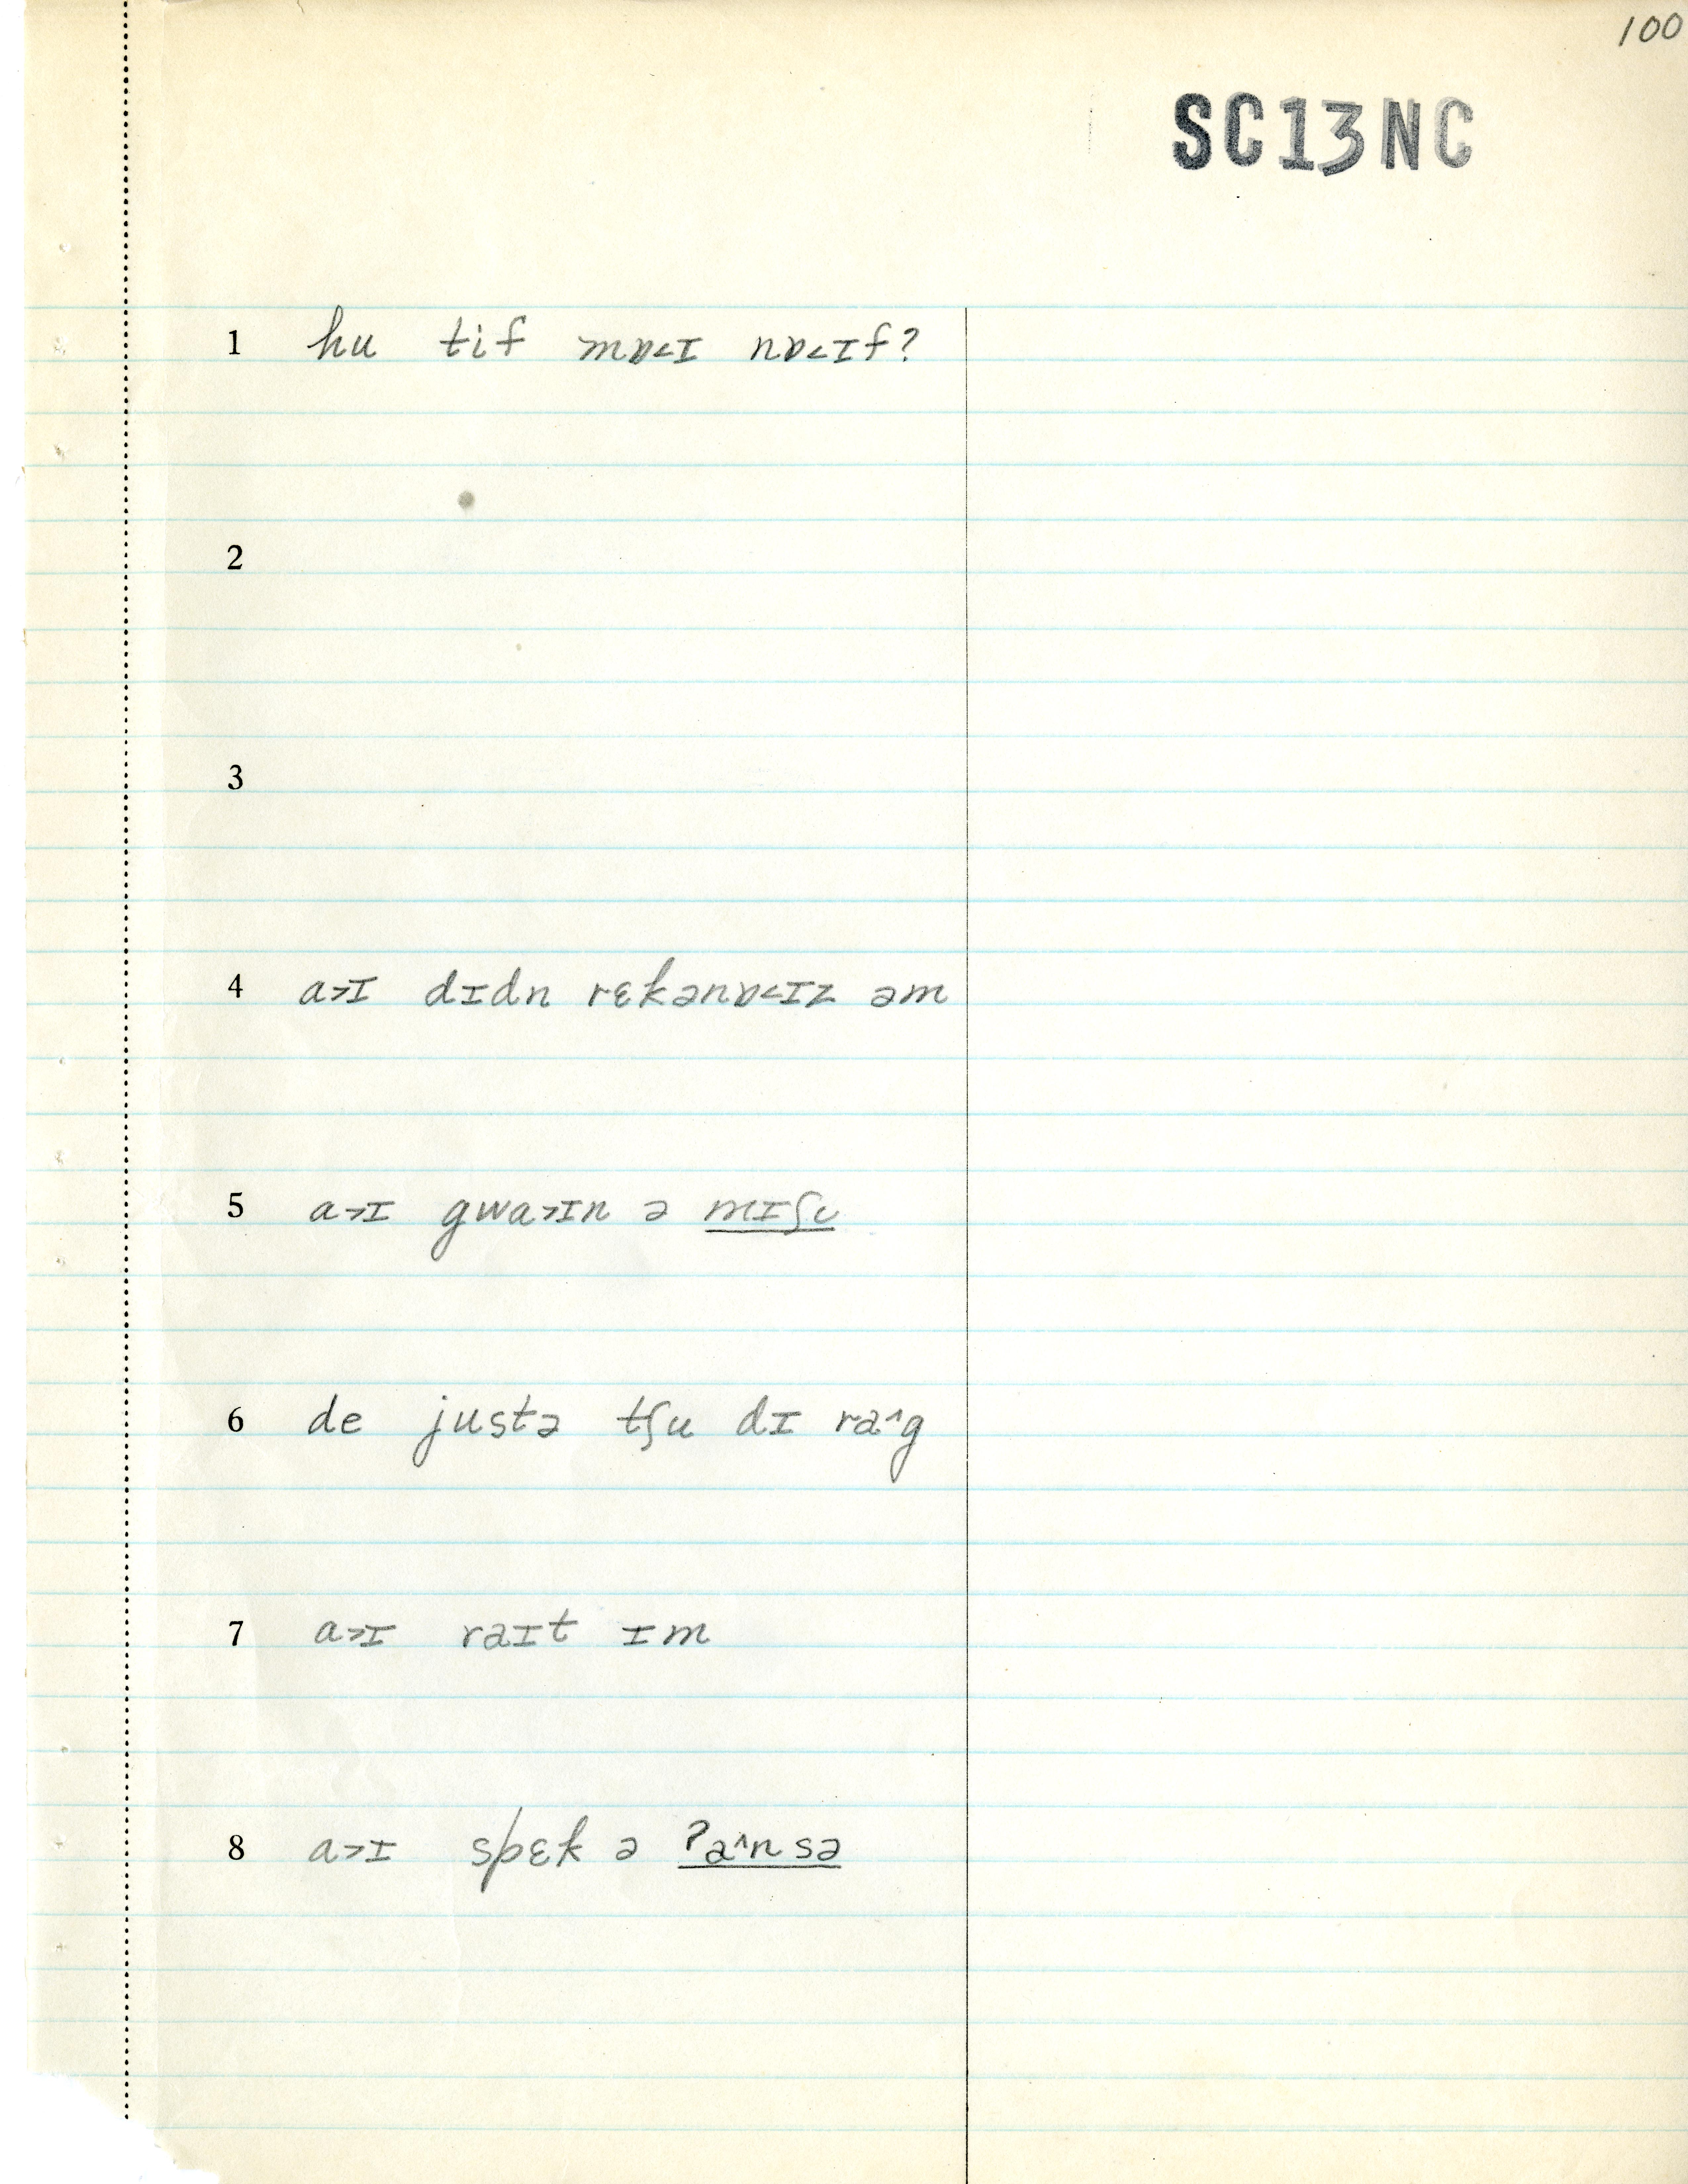 100
SC13NC
1 hu tif mɒ˂ɪ nɒ˂ɪf?
2
3
4 a˃ɪ dɪdn rɛkənɒ˂ɪz əm
5 a˃ɪ gwa˃ɪn ə mɪʃʊ
6 de justə tʃu dɪ ra^g
7 a˃ɪ raɪt ɪm
8 a˃ɪ spɛk ə ʔa^nsə